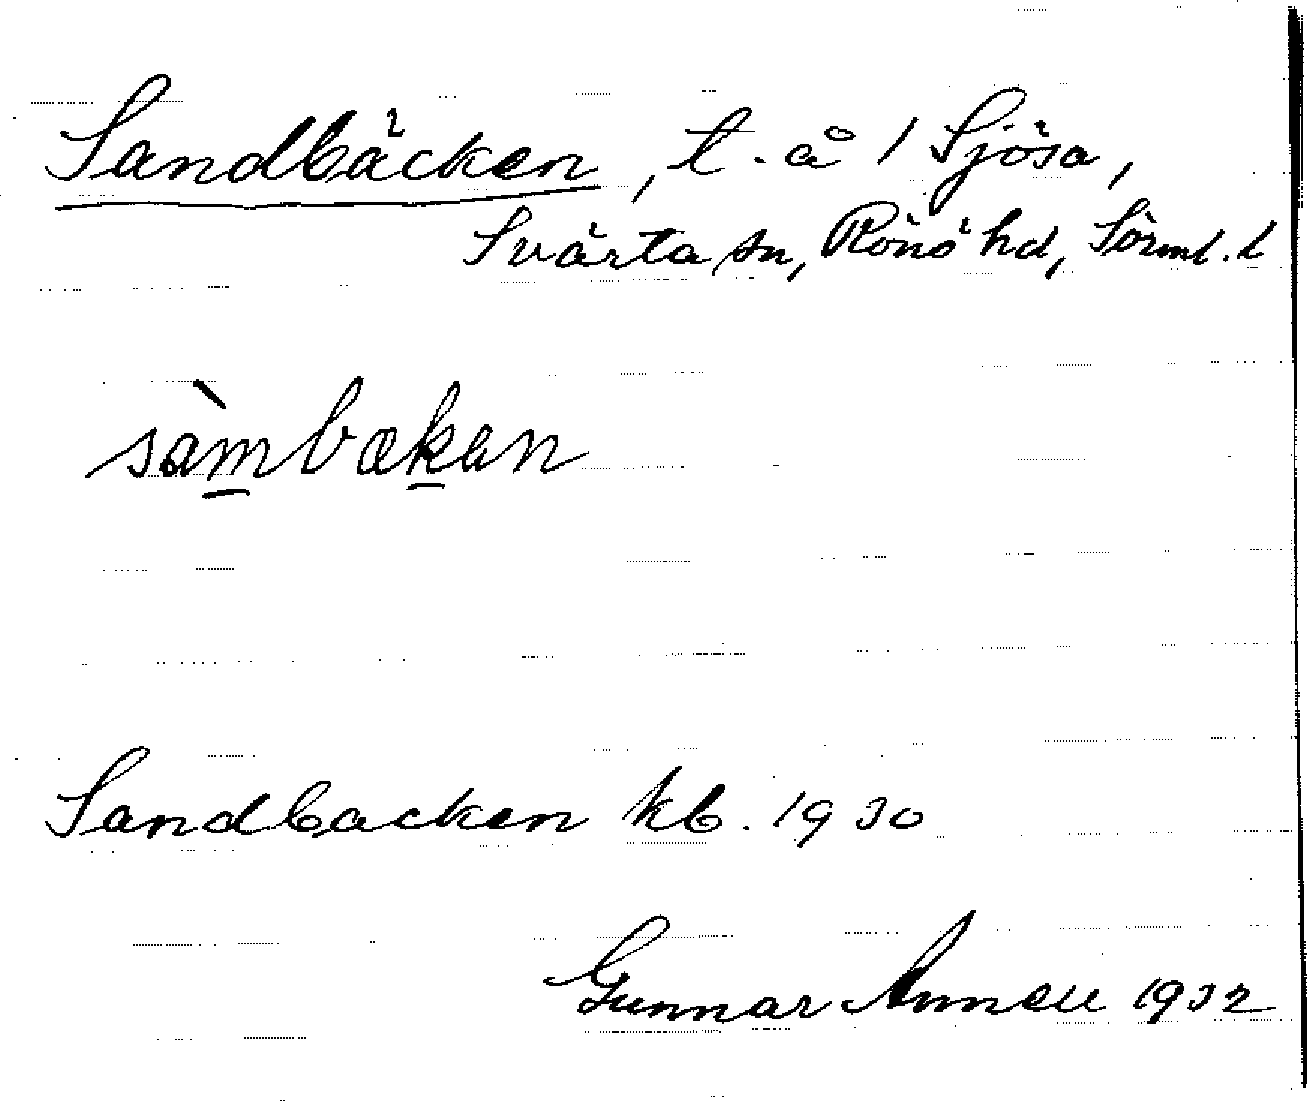 Sandbäcken, t. å 1 Sjösa,
Svärta sn, Rönö hd, Sörml. l
sàmbækan
Sandbacken kb. 1930
Gunnar Annell 1932